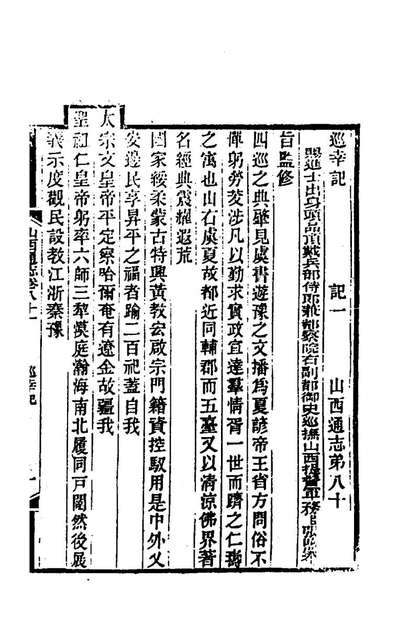 山西通志第八十
巡幸記　記一
賜進士出身頭品頂戴兵部侍郎兼都察院右副都御史巡撫山西提督軍務
旨監修
四巡之典肇見虞書遊豫之文播爲夏諺帝王省方問俗不
憚躬勞麥涉凡以勤求實政宜達羣情胥一世而躋之仁壽
之寓也山右虞夏故都近同輔郡而五臺又以清涼佛界著
名經典震耀遐荒
國家綏柔蒙古特興黃教宏啟宗門籍資控馭用是中外乂
安邊民享昇平之福者踰二百祀蓋自我
太宗文皇帝平定察哈爾奄有遼金故疆我
聖祖仁皇帝躬率六師三犂漠庭瀚海南北履同戸闥然後展
義示度觀民設教江浙秦豫
山西通志卷八十一
巡幸記
一